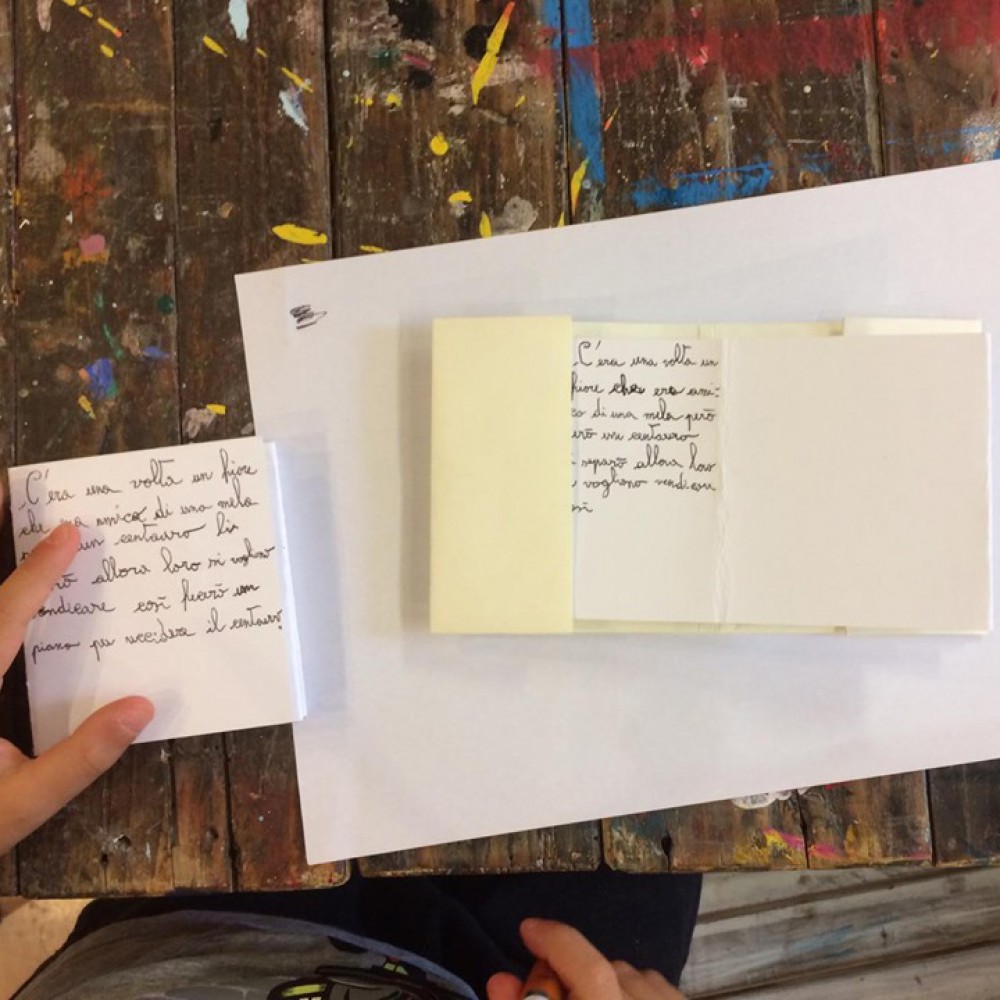 C'era una volta un fiore
che amico di una mela
un centauro li
allora loro si vogliono
ondicare così un
piano per uccidere il centauro.
C'era una volta un
fiore che era ami=
co di una mela però
un centauro
separò allora loro
vogliono vendicare